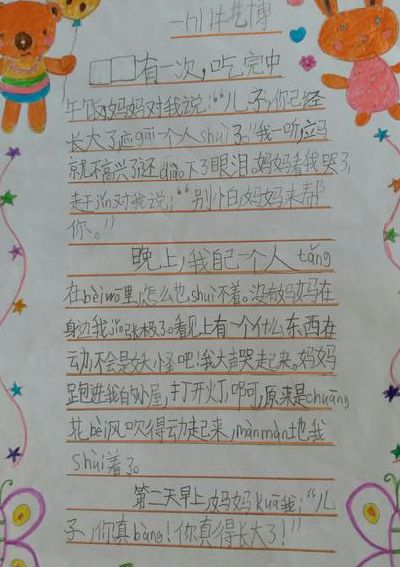 一(1)牛艺博
有一次,吃完中
午饭妈妈对我说:“儿子,你已经
长大了应gāi一个人shuì了。”我一听应马
就不高兴了还diào下了眼泪。妈妈看我哭了,
走jìn对我说:“别怕,妈妈来帮
你。”
晚上,我自己一个人tǎng
在bèiwō里,怎么也shuì不着。没有妈妈在
身边我jǐn张极了。看见上有一个什么东西在
动,不会是妖怪吧!我大声哭起来。妈妈
跑进我的小屋,打开灯,啊,原来是chuāng
花bèi风吹得动起来,mànmàn地我
shuì着了。
第二天早上,妈妈kuā我:“儿
子,你真bàng!你真得长大了!”